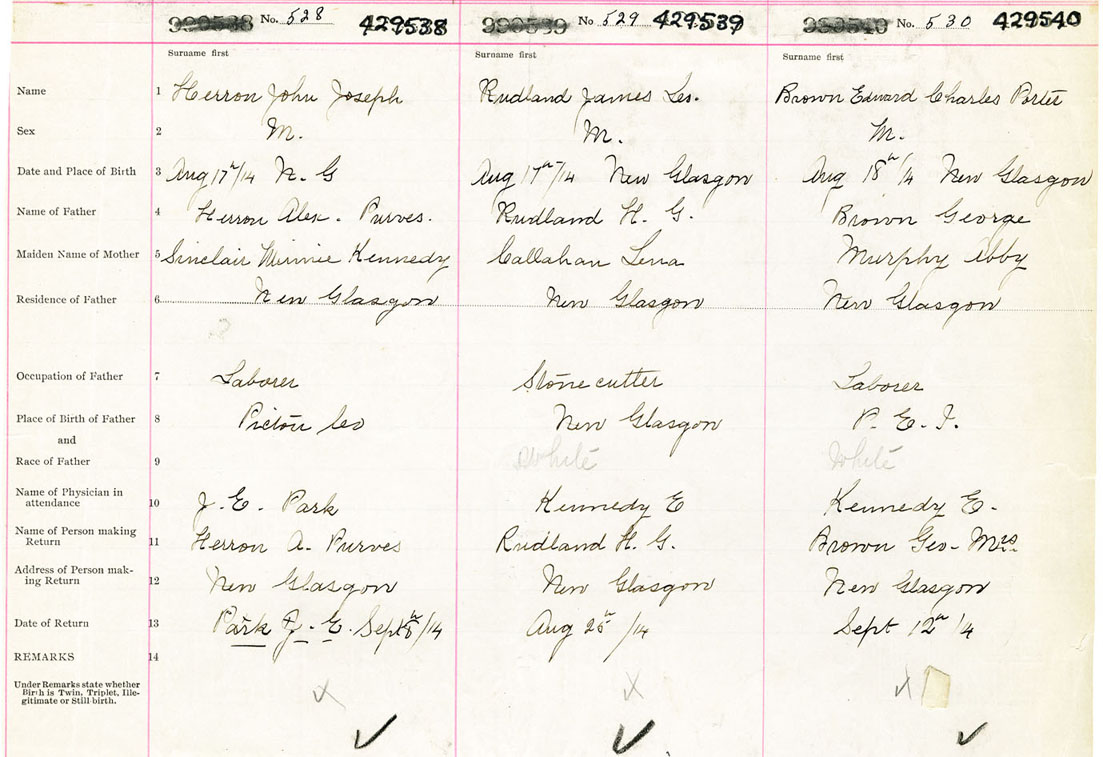 No. 528 429538 No 529 429539 No. 530 429540
Surname first Surname first Surname first
Name 1 Herron John Joseph Rudland James Leo. Brown Edward Charles Porter
Sex 2 M. M. M.
Date and Place of Birth 3 Aug 17th/14 N. G Aug 17th/14 New Glasgow Aug 18th/14 New Glasgow
Name of Father 4 Herron Alex. Purves. Rudland H. G. Brown George
Maiden Name of Mother 5 Sinclair Minnie Kennedy Callahan Lena Murphy Abby
Residence of Father 6 New Glasgow New Glasgow New Glasgow
Occupation of Father 7 Laborer Stone cutter Laborer
Place of Birth of Father 8 Pictou Co New Glasgow P. E. I.
and
Race of Father 9 White White
Name of Physician in
attendance 10 J. E. Park Kennedy E Kennedy E.
Name of Person making
Return 11 Herron A. Purves Rudland H. G. Brown Geo. Mrs.
Address of Person mak-
ing Return 12 New Glasgow New Glasgow New Glasgow
Date of Return 13 Park J. E. Sept /14 Aug /14 Sept 12th 14
REMARKS 14
Under Remarks state whether
Birth is Twin, Triplet, Ille-
gitimate or Still-birth. x x x